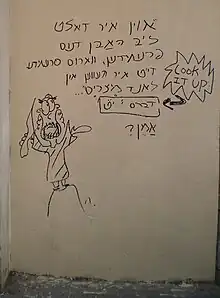 און איר זאלט
ליב האבן דעם
פרעמדען, ווארום פרעמדע
זייט איר געווען אין
לאנד מצרים...
דברים י:יט
אָמֵן?
LOOK
IT UP